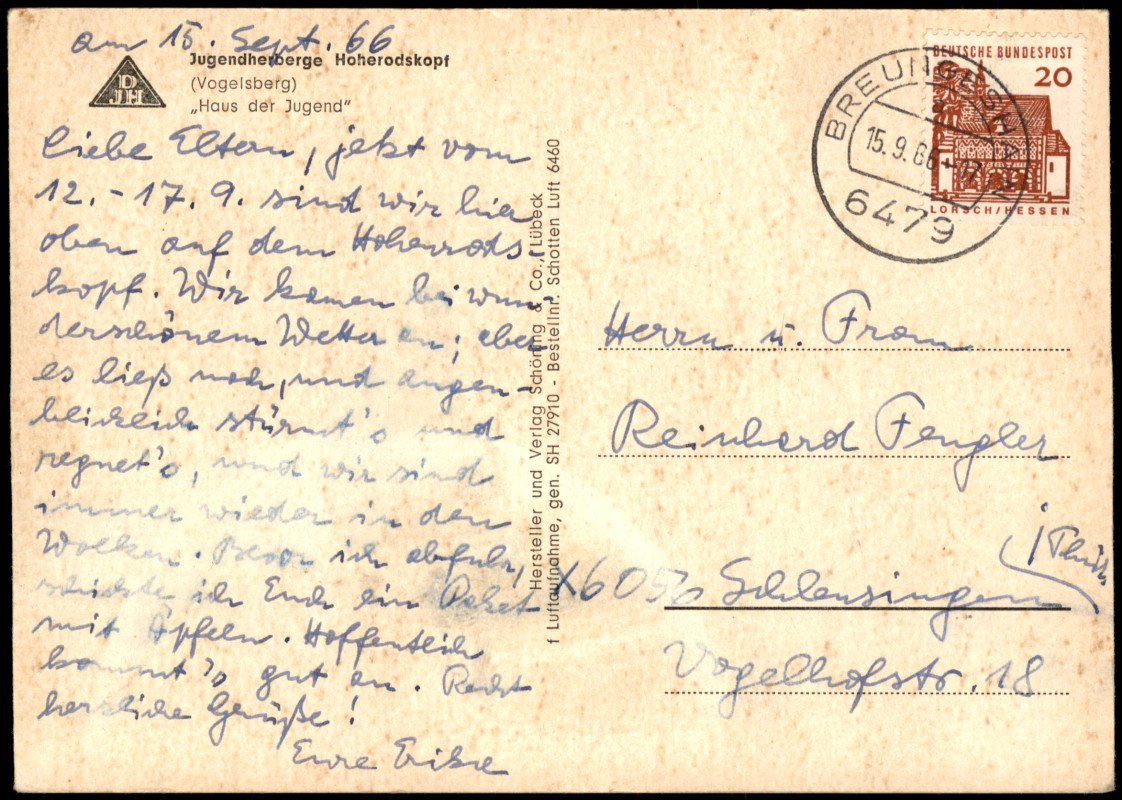 am 15. Sept. 66
DJH
Jugendherberge Hoherodskopf
(Vogelsberg)
„Haus der Jugend"
Liebe Eltern, jetzt vom
12. - 17. 9. sind wir hier
oben auf dem Hoherods-
kopf. Wir kamen bei wun-
derschönem Wetter an; aber
es ließ nach, und augen-
blicklich stürmt's und
regnet's, und wir sind
immer wieder in den
Wolken. Bevor ich abfuhr,
schickte ich Euch ein Paket
mit Äpfeln. Hoffentlich
kommt's gut an. Recht
herzliche Grüße!
Eure Erika
Hersteller und Verlag Schöning & Co., Lübeck
f Luftaufnahme, gen. SH 27910 - Bestellnr. Schotten Luft 6460
DEUTSCHE BUNDESPOST
20
LORSCH/HESSEN
BREUNGESHAIN
15.9.66-17
6479
Herrn u. Frau
Reinhard Fengler
X6056 Schleusingen
/Thür.
Vogelhofstr. 18